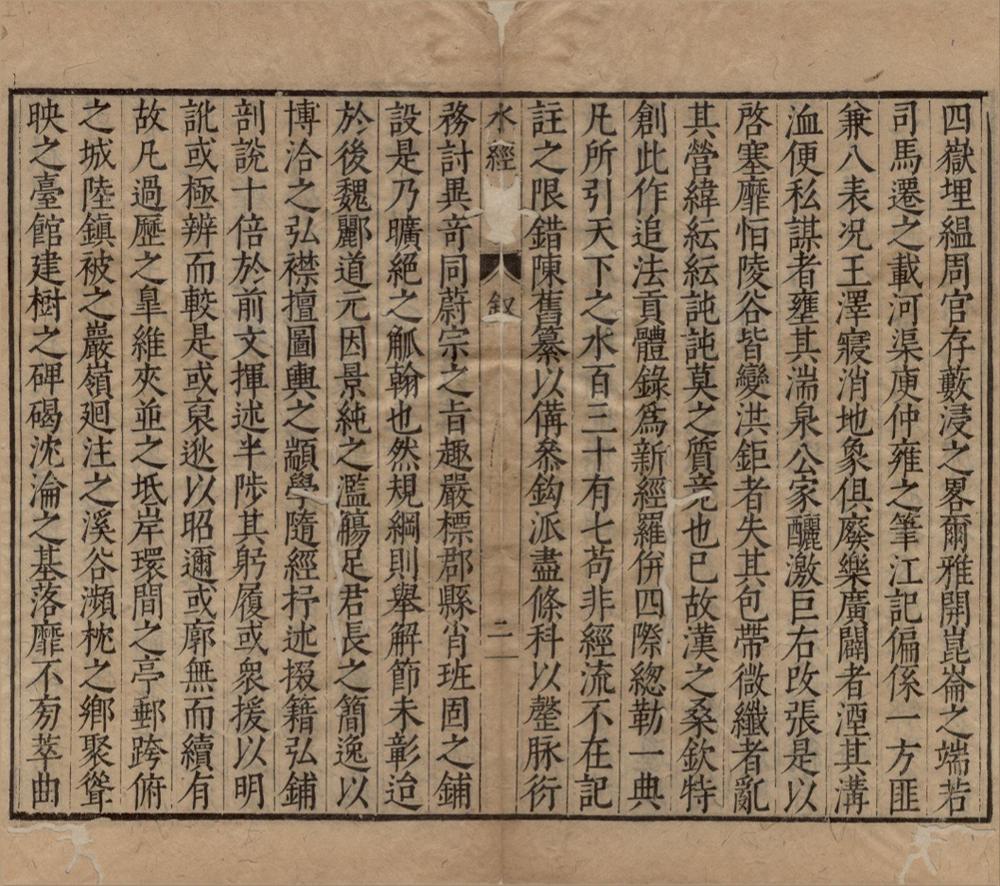 四嶽埋緼周官存藪浸之畧爾雅開崑崙之端若
司馬遷之載河渠庾仲雍之筆江記偏係一方匪
兼八表况王澤寢消地象俱廢樂廣闢者湮其溝
洫便私謀者壅其湍泉公家釃激巨右改張是以
啓塞靡怕陵谷皆變洪鉅者失其包帶微纖者亂
其營緯紜紜訰訰莫之質竟也巳故漢之桑欽特
創此作追法貢體錄爲新經羅併四際總勒一典
凡所引天下之水百三十有七苟非經流不在記
註之限錯陳舊纂以備叅鈎派盡條科以罄脉衍
水經
叙
二
務討異竒同蔚宗之旨趣嚴標郡縣肖班固之鋪
設是乃曠絕之觚翰也然規綱則舉解節未彰迨
於後魏酈道元因景純之濫觴足君長之簡逸以
博洽之弘襟擅圖輿之顓學隨經抒述掇籍弘鋪
剖說十倍於前文揮述半陟其躬履或衆援以明
訛或極辨而較是或裒逖以昭邇或廓無而續有
故凡過歷之臯維夾並之坻岸環間之亭郵跨俯
之城陸鎮被之巖嶺廻注之溪谷瀕枕之鄉聚聳
映之臺館建樹之碑碣沈淪之基落靡不旁萃曲